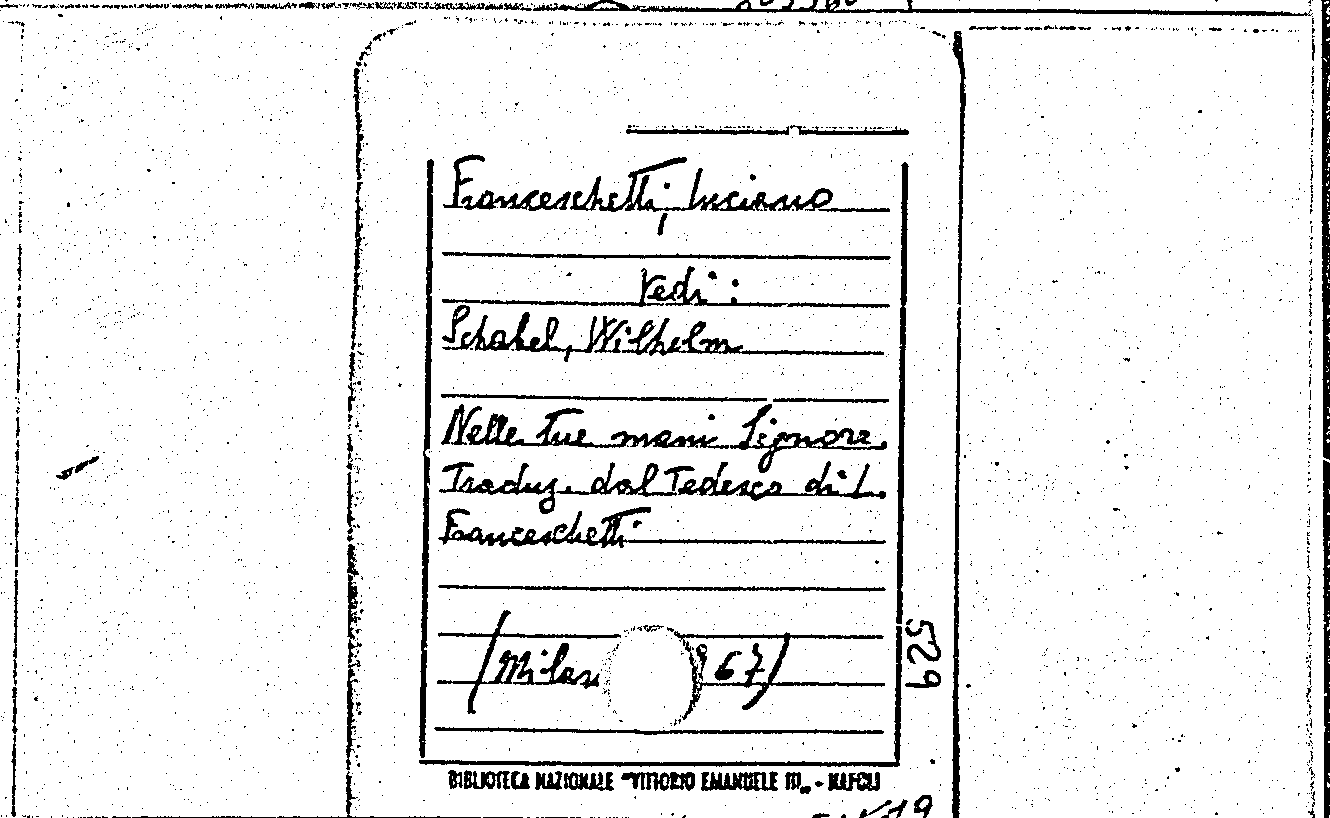 Franceschetti, Luciano
Vedi:
Schabel, Wilhelm
Nelle tue mani Signore.
Traduz. dal Tedesco di L.
Franceschetti
(Milan 967)
529
BIBLIOTECA NAZIONALE "VITTORIO EMANUELE III„ - NAPOLI